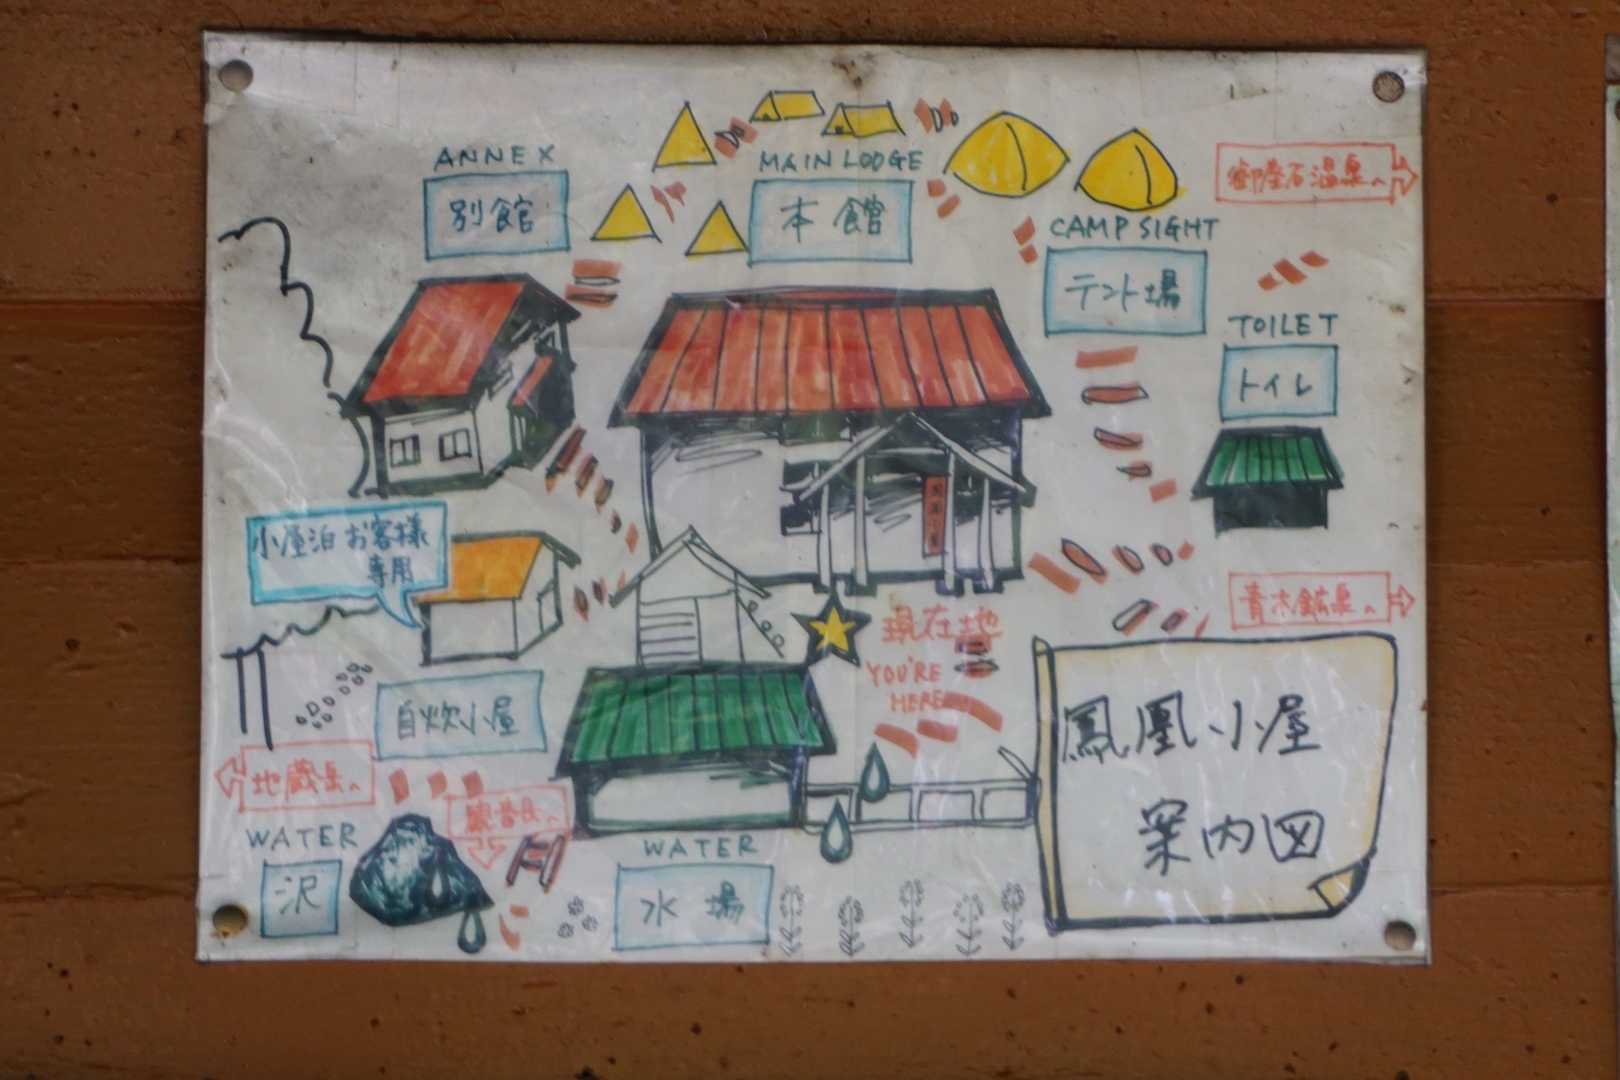 ANNEX
別館
MAIN LODGE
本館
CAMP SIGHT
テント場
御座石温泉へ
TOILET
トイレ
小屋泊お客様
専用
自炊小屋
現在地
YOU'RE
HERE
青木鉱泉へ
鳳凰小屋
案内図
地蔵岳へ
観音岳へ
WATER
沢
WATER
水場
鳳凰小屋